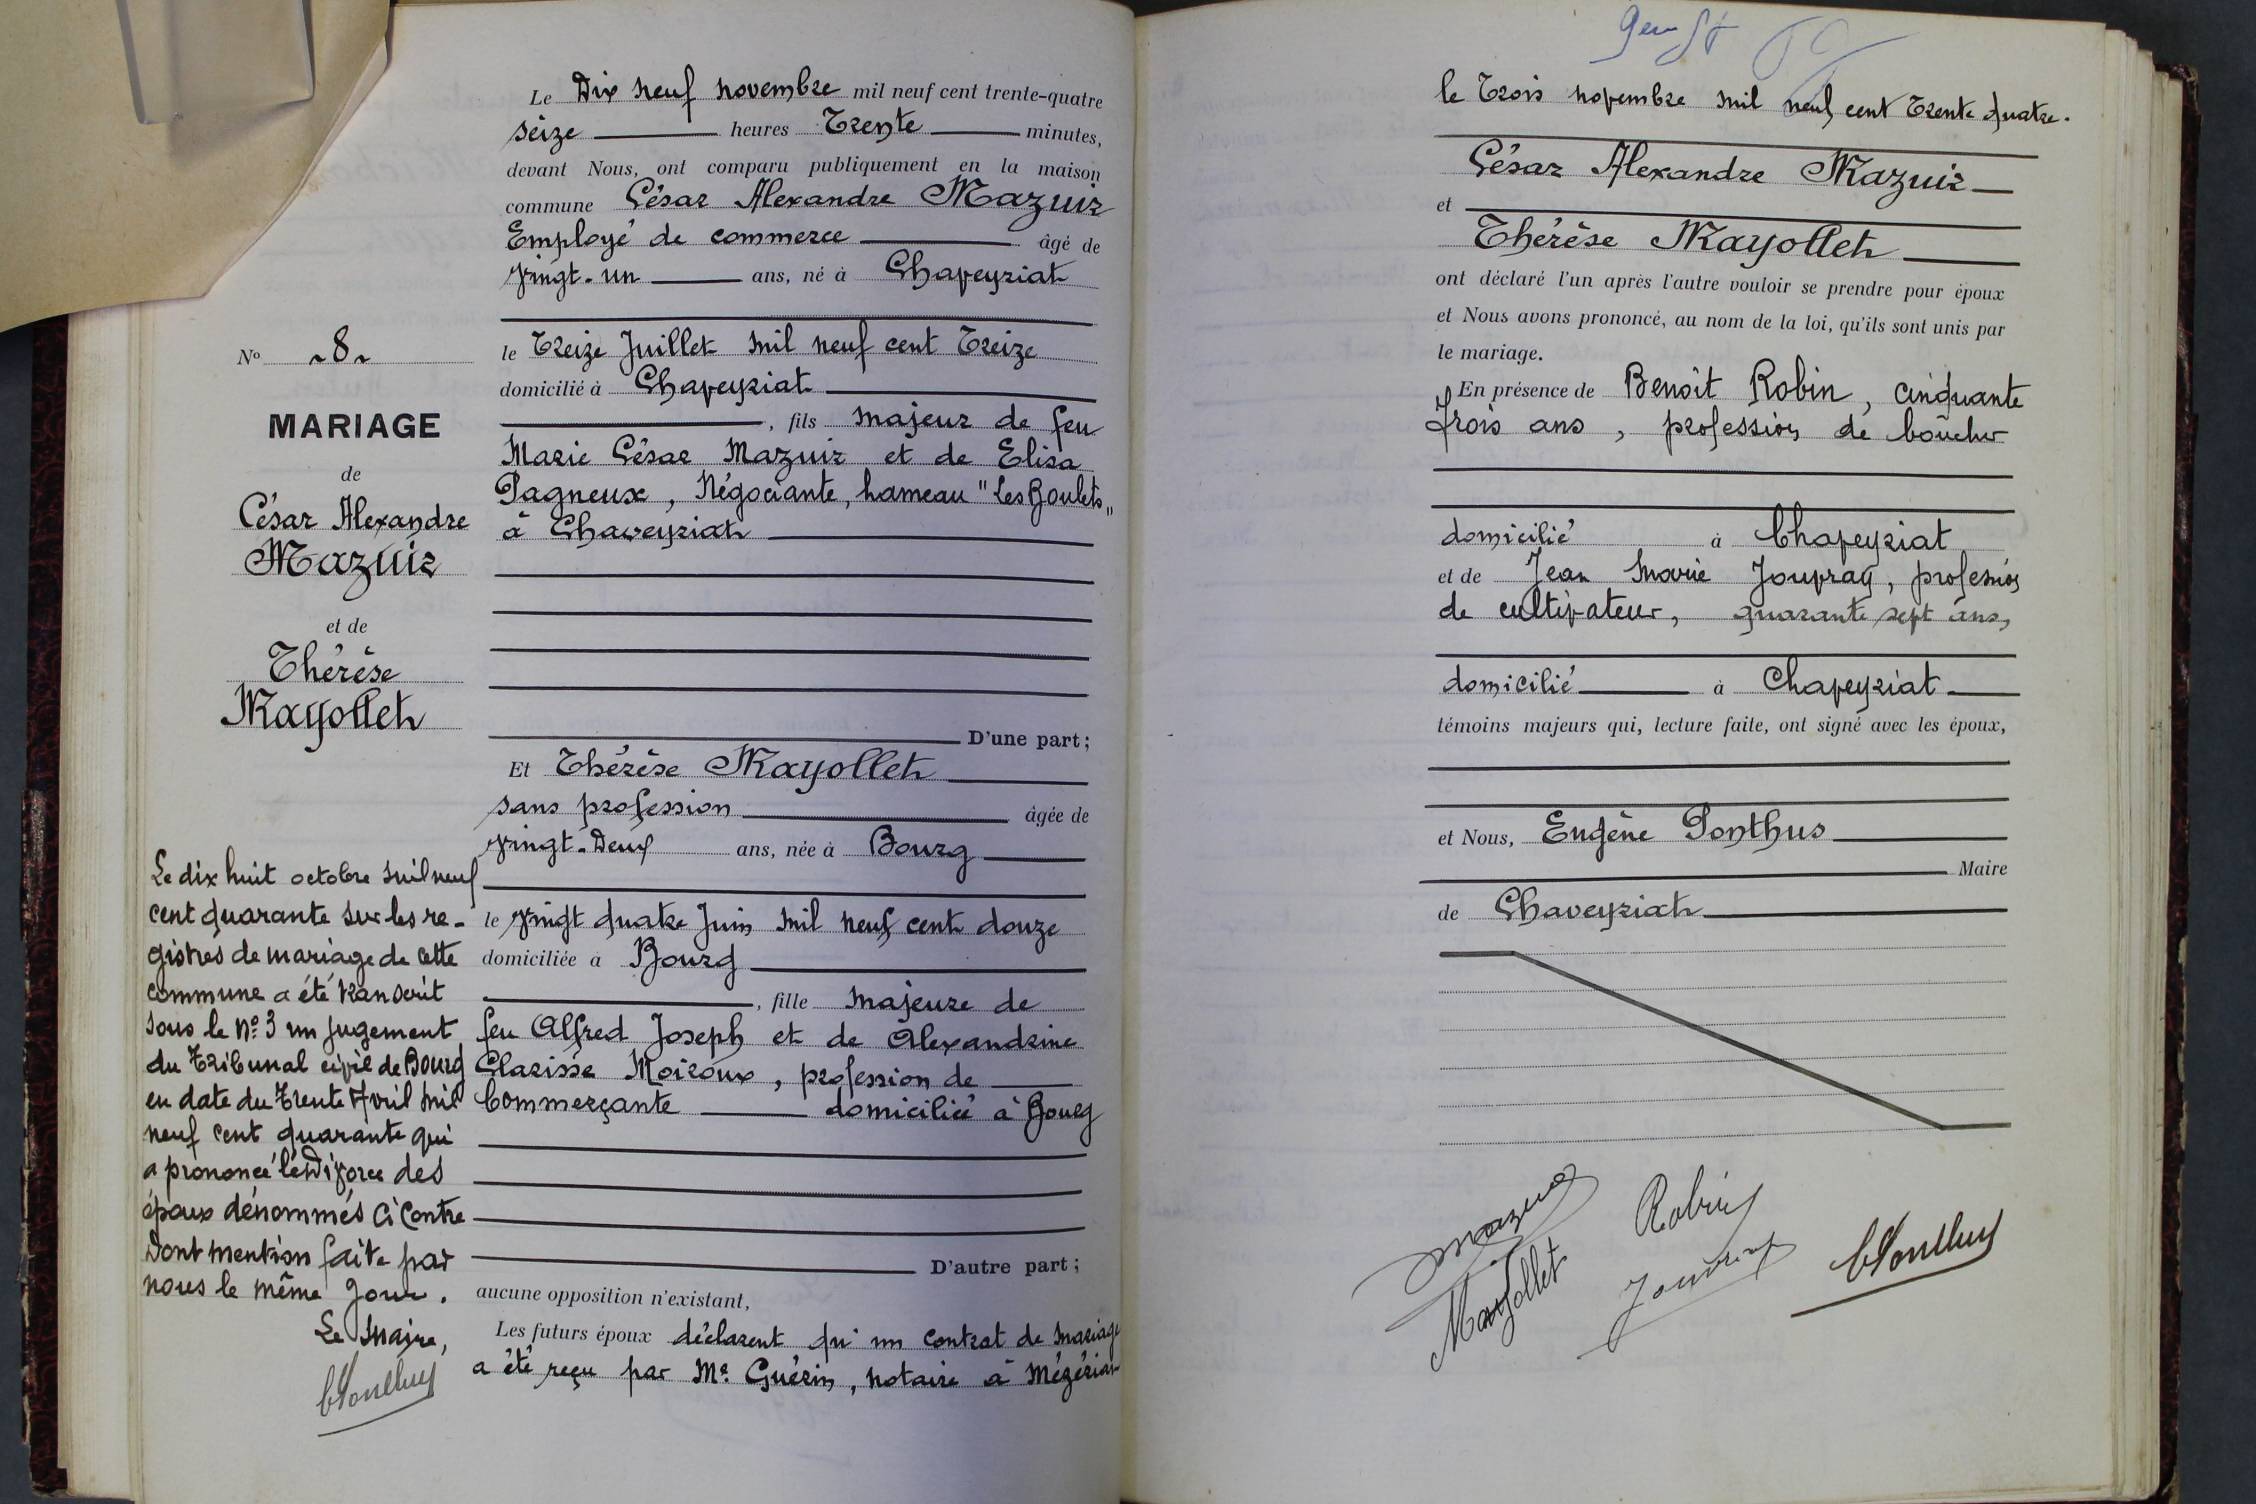 Le Dix neuf novembre mil neuf cent trente-quatre
seize heures Trente minutes,
devant Nous, ont comparu publiquement en la maison
commune César Alexandre Mazuir
Employé de commerce âgé de
vingt-un ans, né à Chaveyriat
le Treize Juillet mil neuf cent Treize
domicilié à Chaveyriat
, fils majeur de feu
Marie César Mazuir et de Elisa
Pagneux, Négociante, hameau "Les Goulets"
à Chaveyriat
D'une part ;
Et Thérèse Mayollet
sans profession âgée de
vingt-Deux ans, née à Bourg
le vingt quatre Juin mil neuf cent douze
domiciliée à Bourg
, fille majeure de
feu Alfred Joseph et de Alexandrine
Clarisse Moiroux, profession de
Commerçante domicilié à Bourg
D'autre part ;
aucune opposition n'existant,
Les futurs époux déclarent qu'un contrat de mariage
a été reçu par Me Guérin, notaire à Mézériat
No 8
MARIAGE
de
César Alexandre
Mazuir
et de
Thérèse
Mayollet
Le dix huit octobre mil neuf
cent quarante sur les re-
gistres de mariage de cette
commune a été transcrit
sous le No 3 un jugement
du Tribunal civil de Bourg
en date du Trente Avril mil
neuf cent quarante qui
a prononcé le Divorce des
époux dénommés ci contre
Dont mention faite par
nous le même jour.
Le Maire,
le Trois novembre mil neuf cent Trente quatre.
César Alexandre Mazuir
et
Thérèse Mayollet
ont déclaré l'un après l'autre vouloir se prendre pour époux
et Nous avons prononcé, au nom de la loi, qu'ils sont unis par
le mariage.
En présence de Benoît Robin, cinquante
trois ans, profession de boucher
domicilié à Chaveyriat
et de Jean Marie Jouvray, profession
de cultivateur, quarante sept ans,
domicilié à Chaveyriat
témoins majeurs qui, lecture faite, ont signé avec les époux,
et Nous, Eugène Ponthus
Maire
de Chaveyriat
Mazuir
Robin
Mayollet
Jouvray